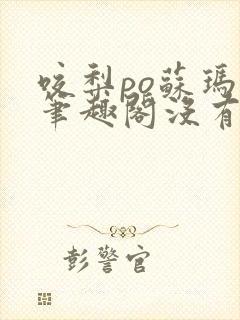 咬梨po蘇瑪
筆趣閣沒有
彭警官